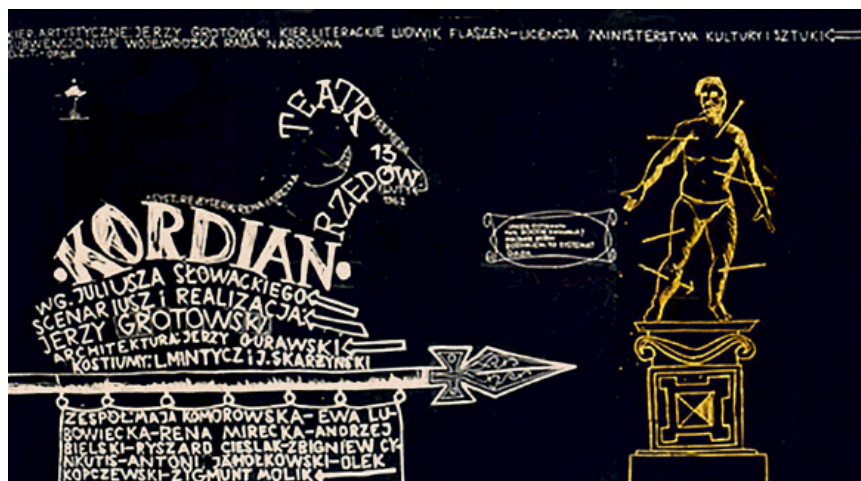 KIER. ARTYSTYCZNE: JERZY GROTOWSKI KIER. LITERACKIE LUDWIK FLASZEN-LICENCJA MINISTERSTWA KULTURY I SZTUKI
SUBWENCJONUJE WOJEWÓDZKA RADA NARODOWA
OPOLE
TEATR
13
RZĘDÓW
1962
ASYST. REŻYSERA: RENA MIRECKA
·KORDIAN·
WG. JULIUSZA SŁOWACKIEGO
SCENARIUSZ i REALIZACJA:
JERZY GROTOWSKI
ARCHITEKTURA: JERZY GURAWSKI
KOSTIUMY: L. MINTYCZ i J. SKARŻYŃSKI
ZESPÓŁ: MAJA KOMOROWSKA-EWA LU-
BOWIECKA-RENA MIRECKA-ANDRZEJ
BIELSKI-RYSZARD CIEŚLAK-ZBIGNIEW CY-
NKUTIS-ANTONI JAHOŁKOWSKI-OLEK
KOPCZEWSKI-ZYGMUNT MOLIK